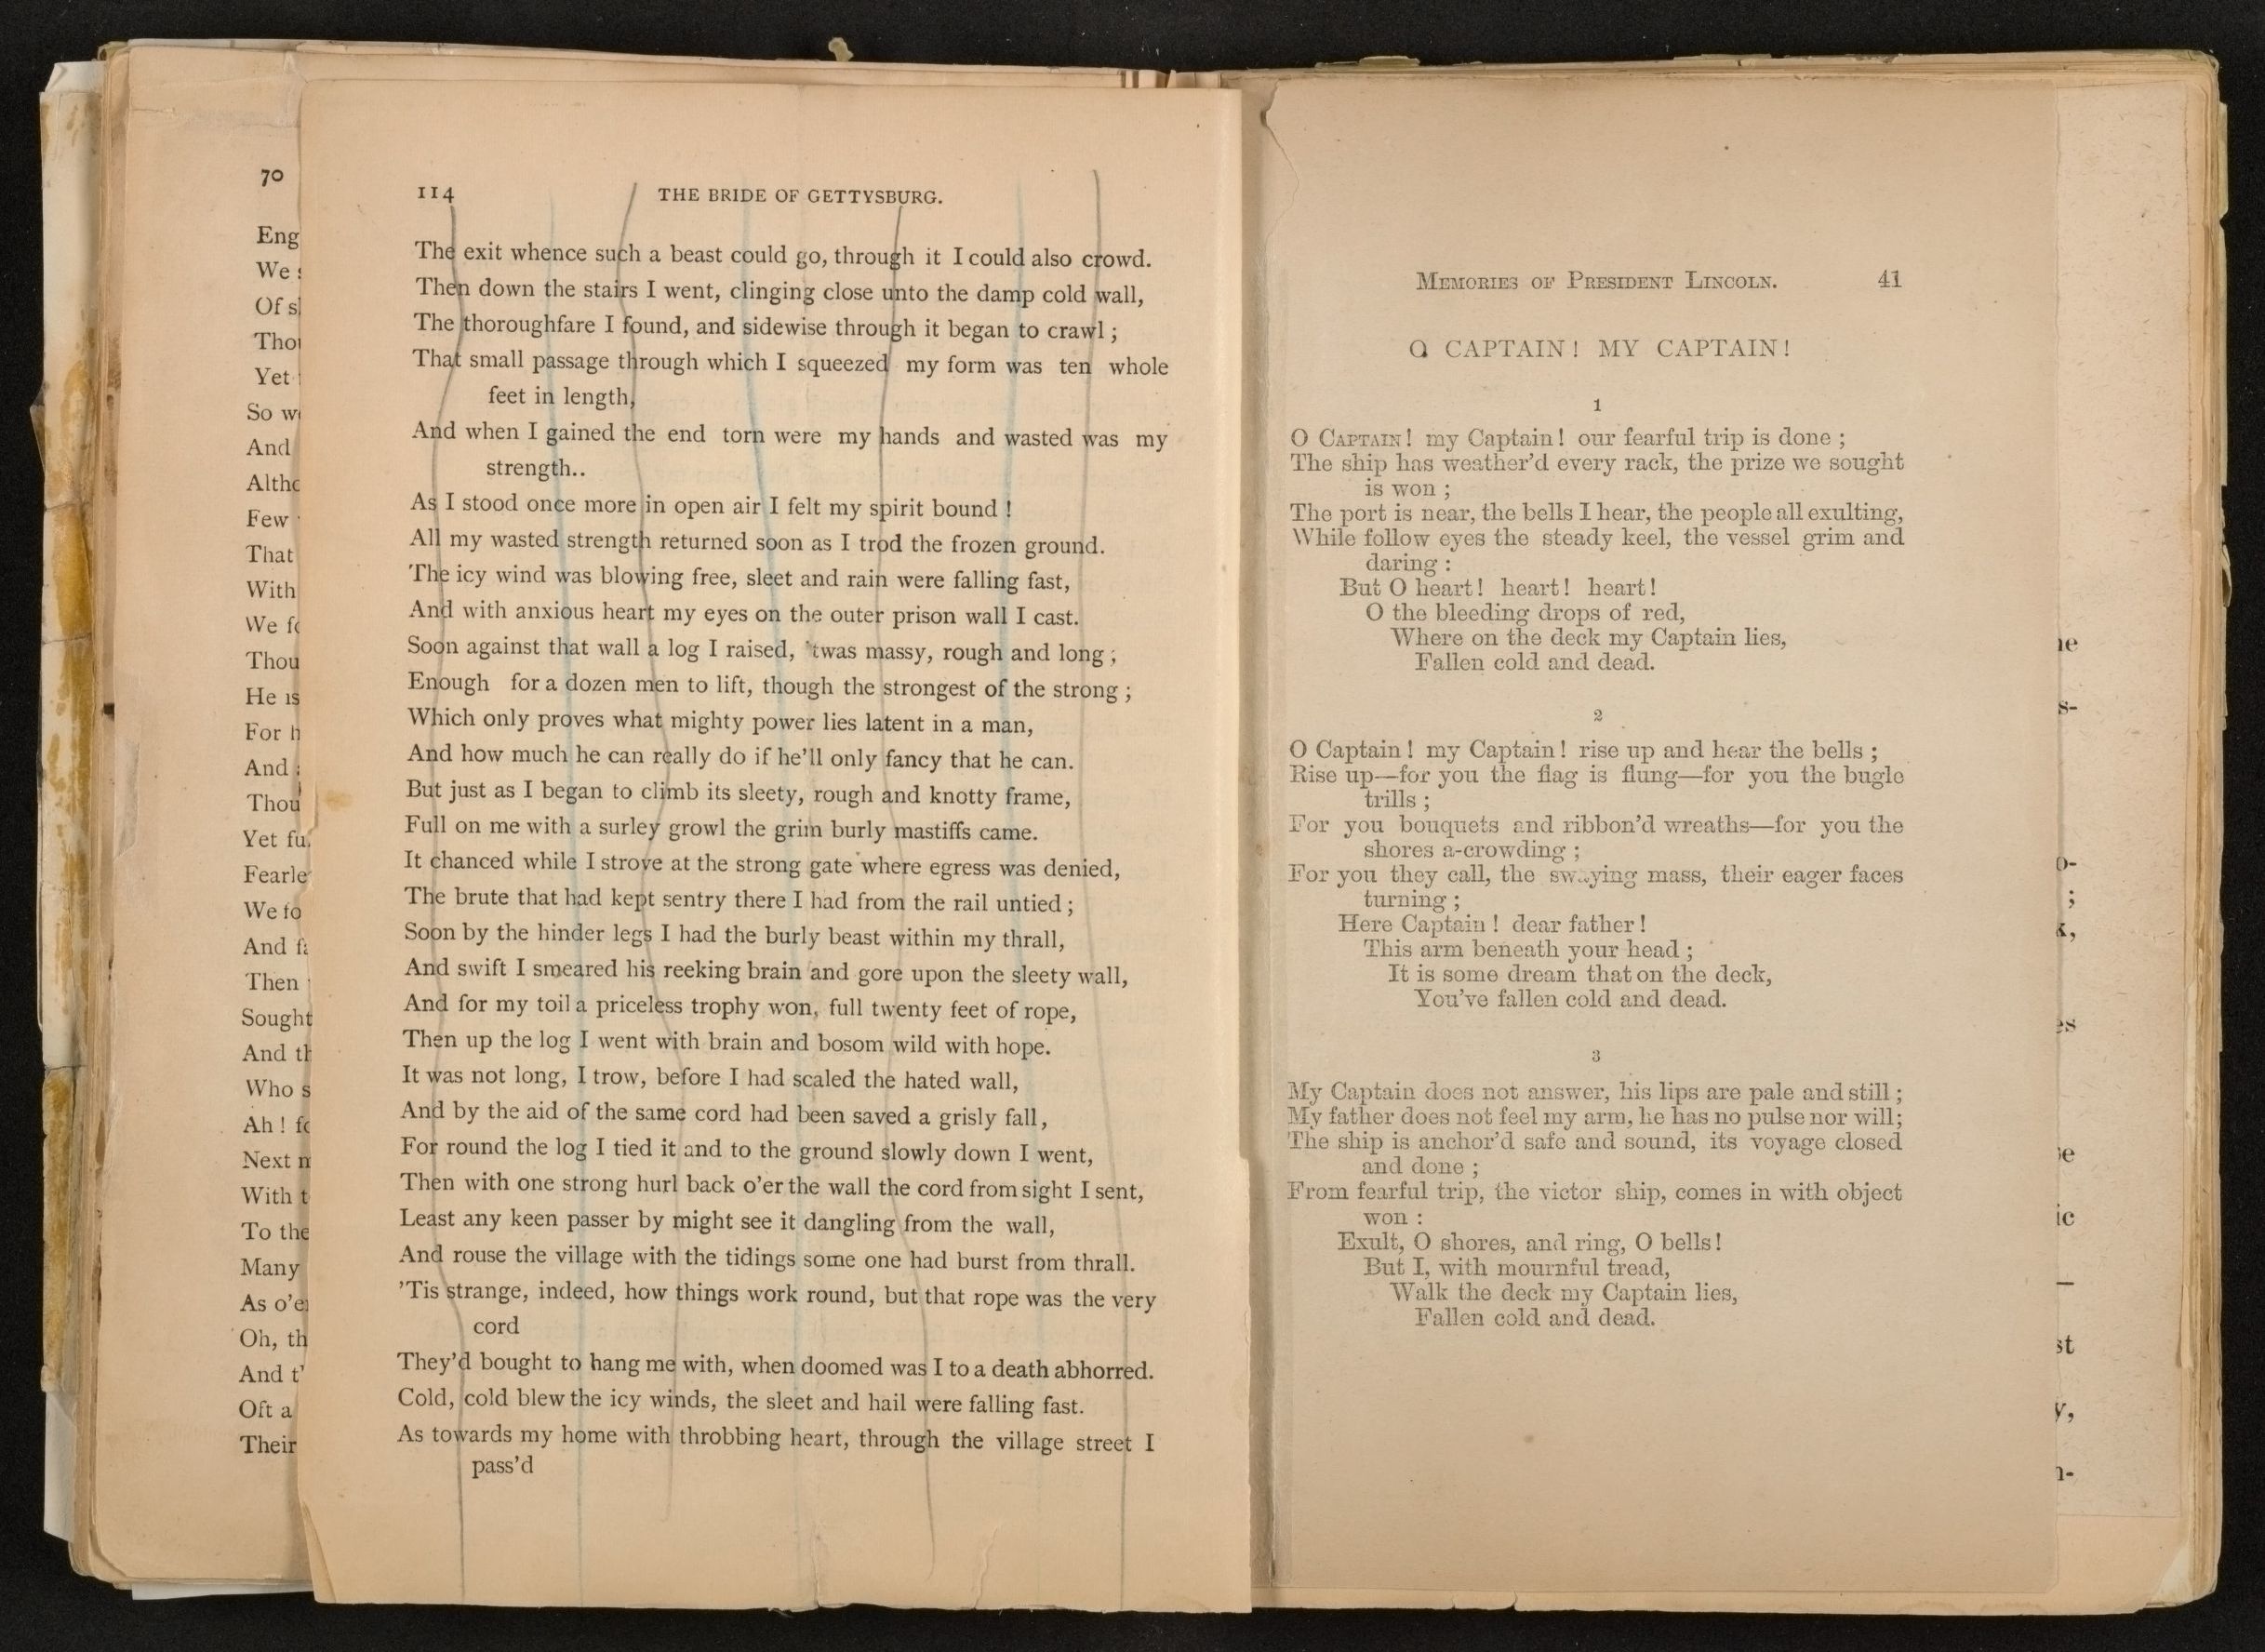 70
Eng
We
Of s
Thou
Yet
So w
And
Altho
Few
That
With
We fo
Thou
He is
For h
And
Thou
Yet fu
Fearle
We fo
And f
Then
Sought
And th
Who s
Ah ! fo
Next n
With t
To the
Many
As o'e
Oh, th
And t'
Oft a
Their
114 THE BRIDE OF GETTYSBURG.
The exit whence such a beast could go, through it I could also crowd.
Then down the stairs I went, clinging close unto the damp cold wall,
The thoroughfare I found, and sidewise through it began to crawl ;
That small passage through which I squeezed my form was ten whole
feet in length,
And when I gained the end torn were my hands and wasted was my
strength..
As I stood once more in open air I felt my spirit bound !
All my wasted strength returned soon as I trod the frozen ground.
The icy wind was blowing free, sleet and rain were falling fast,
And with anxious heart my eyes on the outer prison wall I cast.
Soon against that wall a log I raised, 'twas massy, rough and long ;
Enough for a dozen men to lift, though the strongest of the strong ;
Which only proves what mighty power lies latent in a man,
And how much he can really do if he'll only fancy that he can.
But just as I began to climb its sleety, rough and knotty frame,
Full on me with a surley growl the grim burly mastiffs came.
It chanced while I strove at the strong gate where egress was denied,
The brute that had kept sentry there I had from the rail untied ;
Soon by the hinder legs I had the burly beast within my thrall,
And swift I smeared his reeking brain and gore upon the sleety wall,
And for my toil a priceless trophy won, full twenty feet of rope,
Then up the log I went with brain and bosom wild with hope.
It was not long, I trow, before I had scaled the hated wall,
And by the aid of the same cord had been saved a grisly fall,
For round the log I tied it and to the ground slowly down I went,
Then with one strong hurl back o'er the wall the cord from sight I sent,
Least any keen passer by might see it dangling from the wall,
And rouse the village with the tidings some one had burst from thrall.
'Tis strange, indeed, how things work round, but that rope was the very
cord
They'd bought to hang me with, when doomed was I to a death abhorred.
Cold, cold blew the icy winds, the sleet and hail were falling fast.
As towards my home with throbbing heart, through the village street I
pass'd
MEMORIES OF PRESIDENT LINCOLN. 41
O CAPTAIN! MY CAPTAIN!
1
O CAPTAIN! my Captain! our fearful trip is done ;
The ship has weather'd every rack, the prize we sought
is won ;
The port is near, the bells I hear, the people all exulting,
While follow eyes the steady keel, the vessel grim and
daring :
But O heart! heart! heart!
O the bleeding drops of red,
Where on the deck my Captain lies,
Fallen cold and dead.
2
O Captain! my Captain! rise up and hear the bells ;
Rise up—for you the flag is flung—for you the bugle
trills ;
For you bouquets and ribbon'd wreaths—for you the
shores a-crowding ;
For you they call, the swaying mass, their eager faces
turning ;
Here Captain! dear father!
This arm beneath your head ;
It is some dream that on the deck,
You've fallen cold and dead.
3
My Captain does not answer, his lips are pale and still ;
My father does not feel my arm, he has no pulse nor will;
The ship is anchor'd safe and sound, its voyage closed
and done ;
From fearful trip, the victor ship, comes in with object
won :
Exult, O shores, and ring, O bells!
But I, with mournful tread,
Walk the deck my Captain lies,
Fallen cold and dead.
s-
;
es
ic
—
st
y,